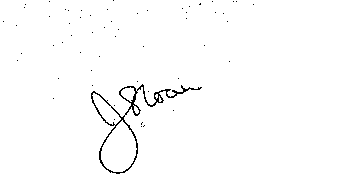 J Sloan